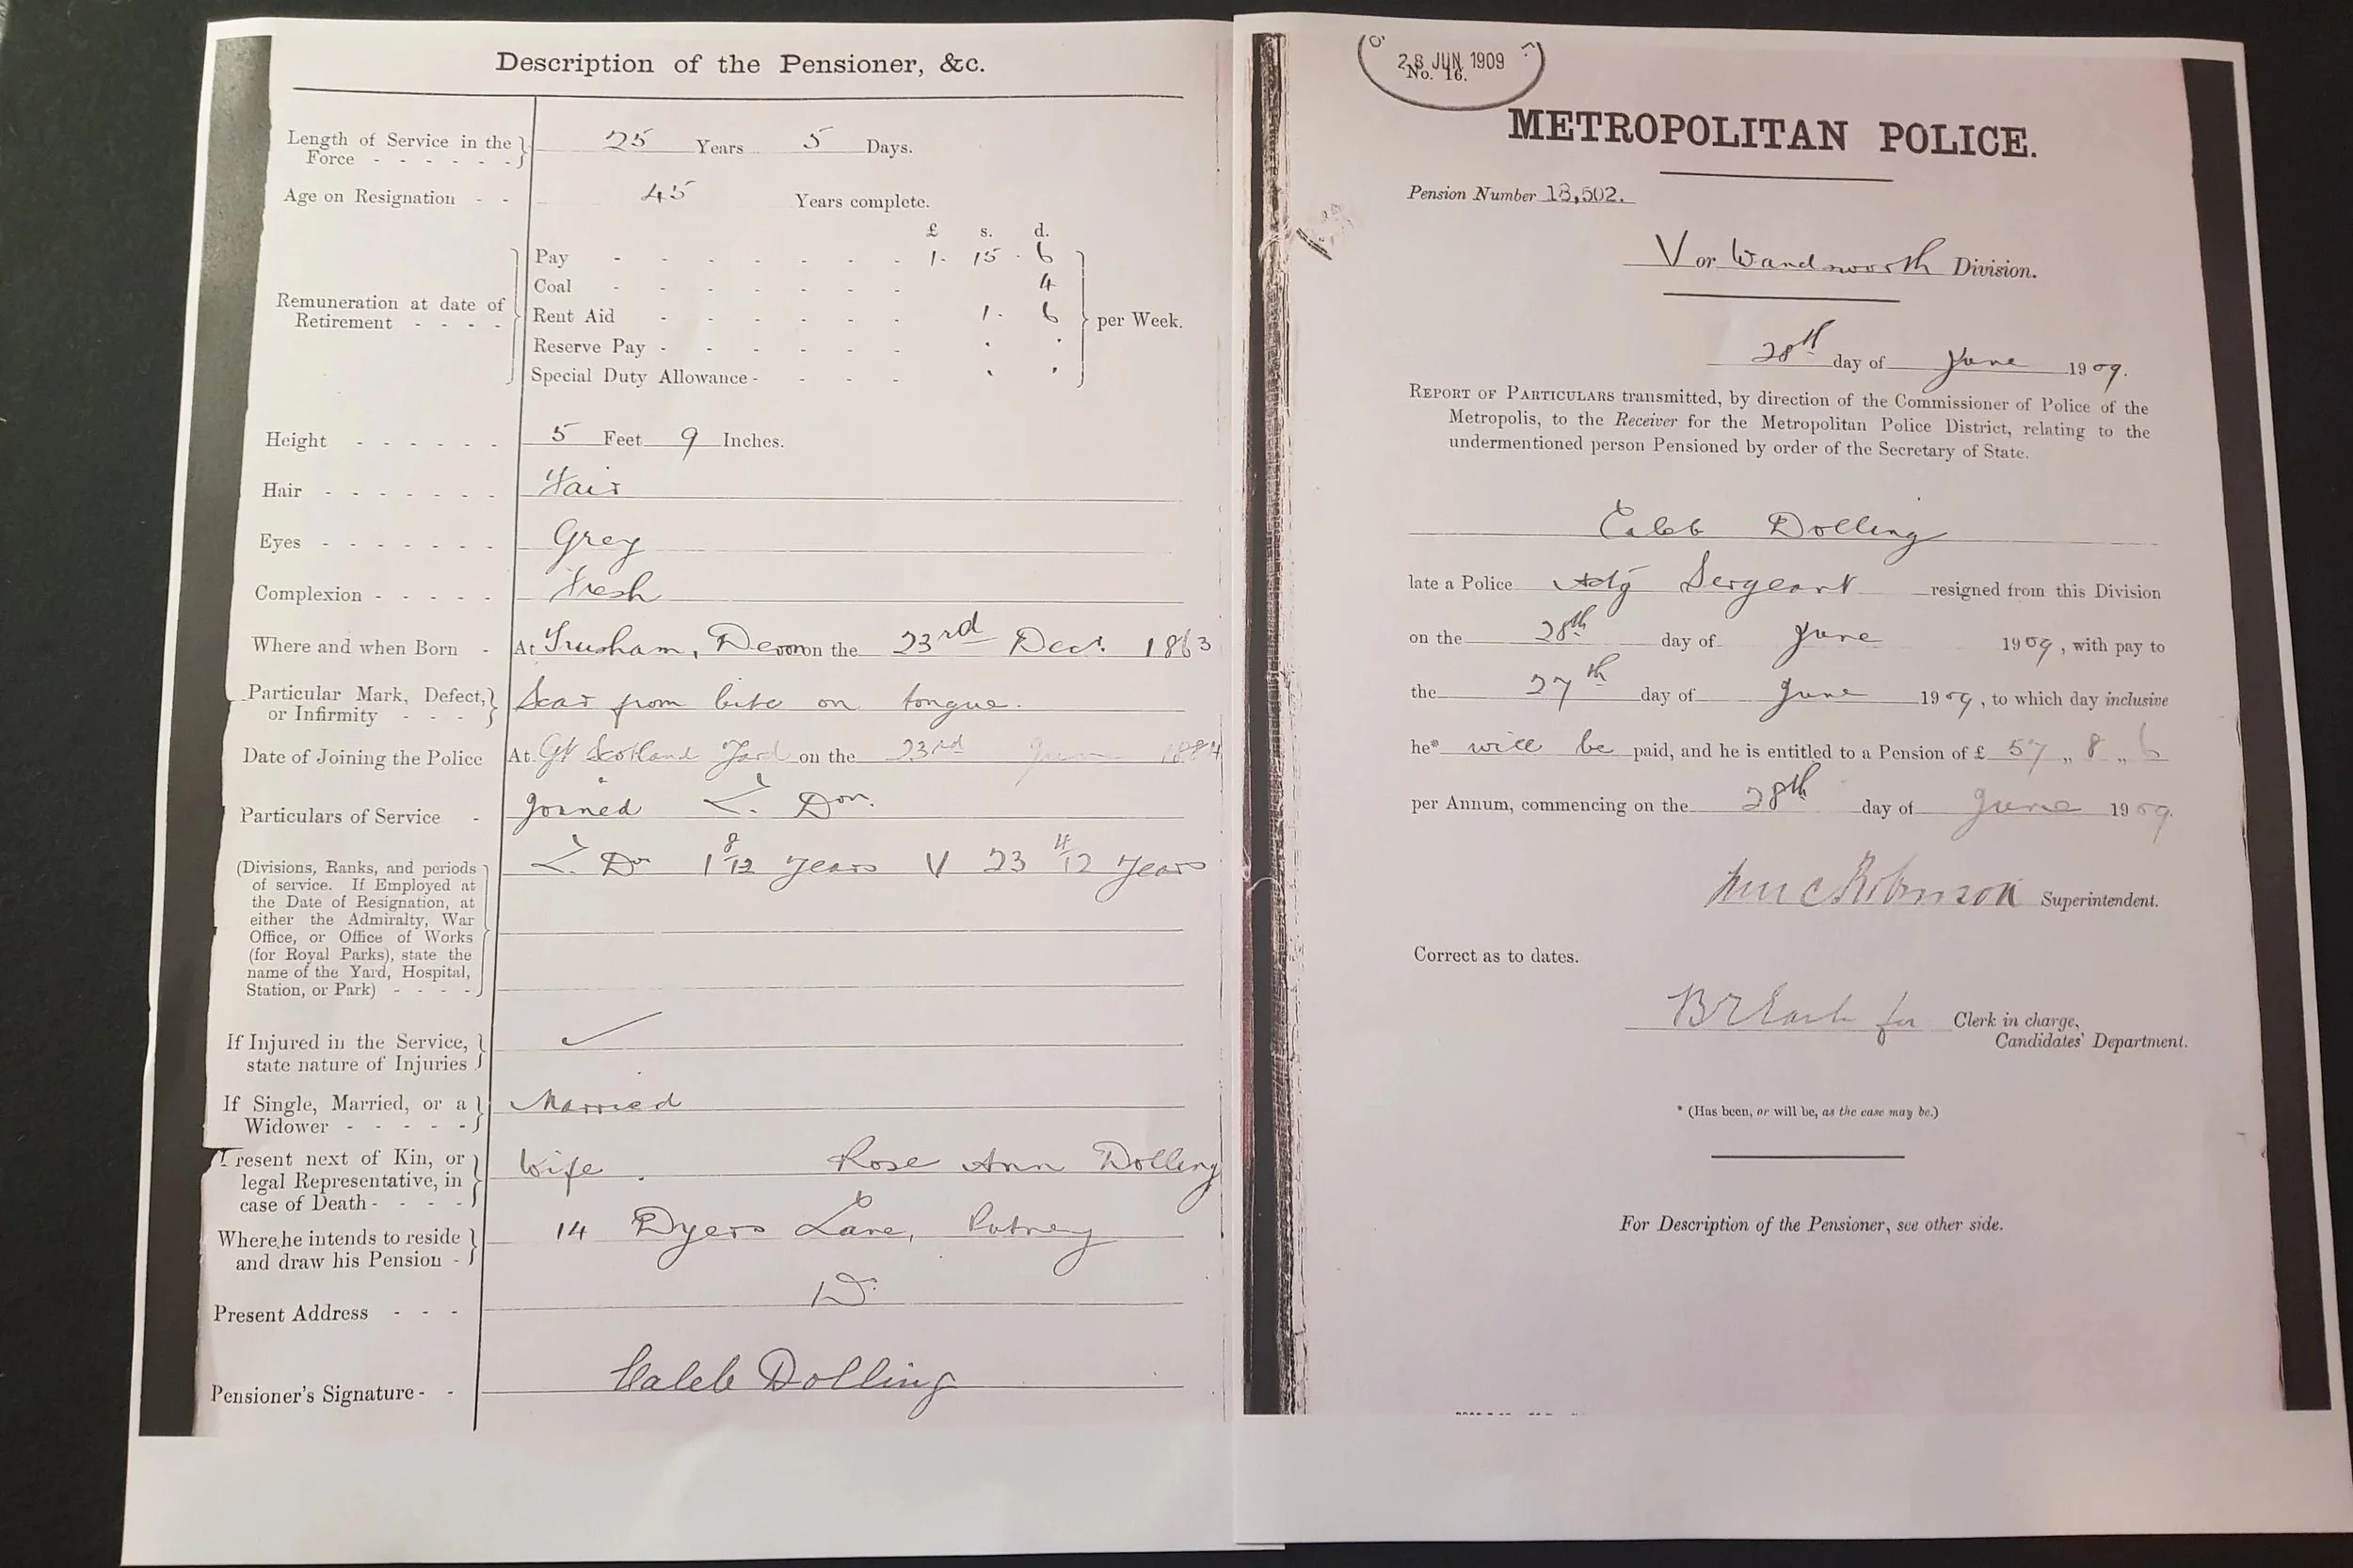 Description of the Pensioner, &c.
Length of Service in the Force - - - - - - 25 Years 5 Days.
Age on Resignation - - 45 Years complete.
£ s. d.
Remuneration at date of Retirement - - - -
Pay - - - - - - - 1 . 15 . 6
Coal - - - - - - 4
Rent Aid - - - - - - 1 . 6
Reserve Pay - - - - - -
Special Duty Allowance - - - -
per Week.
Height - - - - - - 5 Feet 9 Inches.
Hair - - - - - - - Fair
Eyes - - - - - - - Grey
Complexion - - - - - Fresh
Where and when Born - At Trusham, Devon on the 23rd Decr. 1863
Particular Mark, Defect, or Infirmity - - - Scar from bite on tongue.
Date of Joining the Police At Gt Scotland Yard on the 23rd June 1884
Particulars of Service - Joined L. Don.
(Divisions, Ranks, and periods of service. If Employed at the Date of Resignation, at either the Admiralty, War Office, or Office of Works (for Royal Parks), state the name of the Yard, Hospital, Station, or Park) - - - -
L. Dn 1 8/12 years V 23 4/12 years
If Injured in the Service, state nature of Injuries
If Single, Married, or a Widower - - - - - Married
Present next of Kin, or legal Representative, in case of Death - - - - Wife. Rose Ann Dolling
Where he intends to reside and draw his Pension - 14 Dyers Lane, Putney
Present Address - - - Do.
Pensioner's Signature - - Caleb Dolling
28 JUN 1909
No. 16.
METROPOLITAN POLICE.
Pension Number 18,502.
V or Wandsworth Division.
28th day of June 1909.
REPORT OF PARTICULARS transmitted, by direction of the Commissioner of Police of the
Metropolis, to the Receiver for the Metropolitan Police District, relating to the
undermentioned person Pensioned by order of the Secretary of State.
Caleb Dolling
late a Police Actg Sergeant resigned from this Division
on the 28th day of June 1909, with pay to
the 27th day of June 1909, to which day inclusive
he* will be paid, and he is entitled to a Pension of £ 57 „ 8 „ 6
per Annum, commencing on the 28th day of June 1909.
Robinson Superintendent.
Correct as to dates.
for Clerk in charge,
Candidates' Department.
* (Has been, or will be, as the case may be.)
For Description of the Pensioner, see other side.